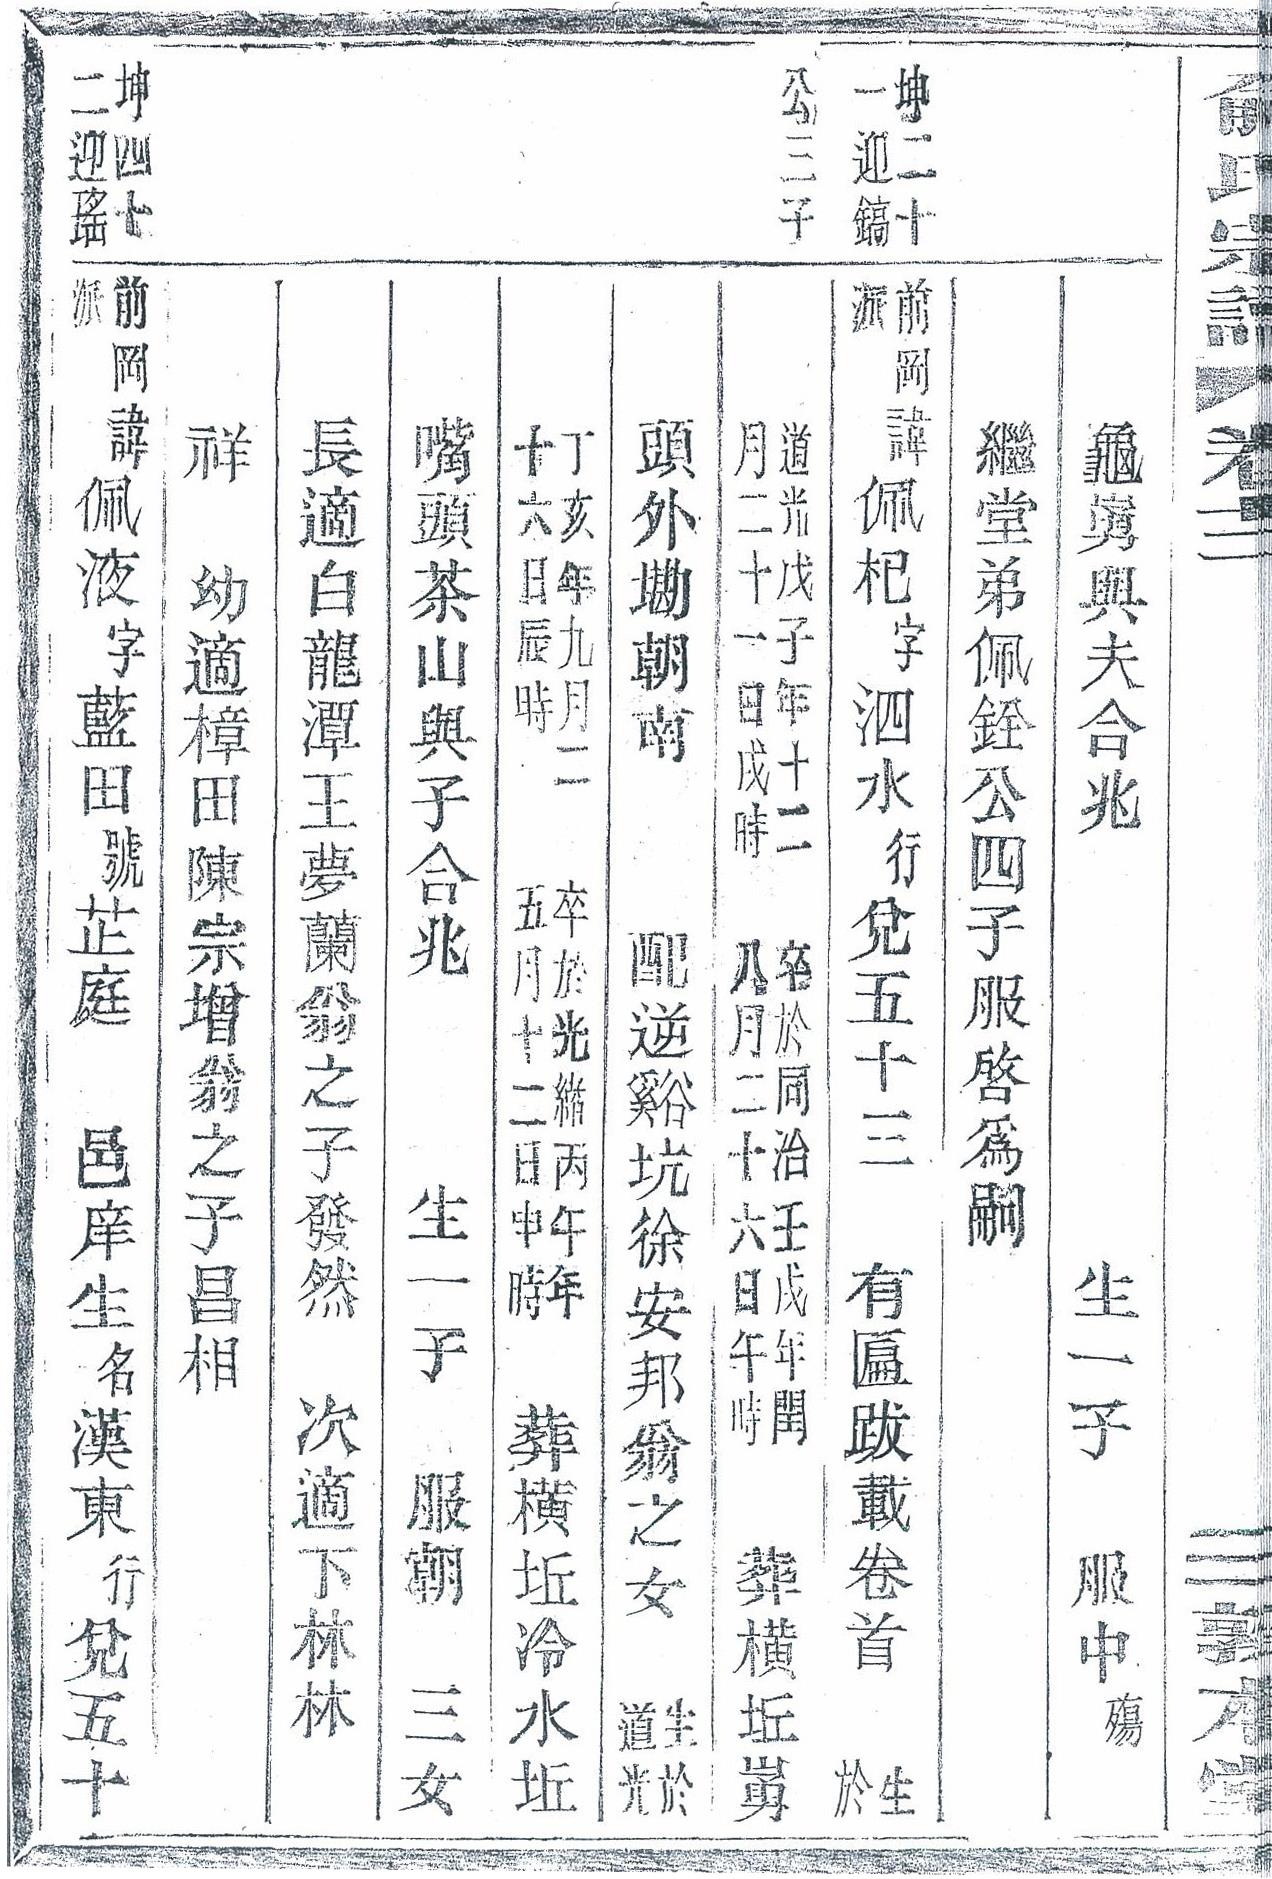 俞氏宗譜 卷二 三 敦本堂
龜與夫合兆 生一子 服中殤
繼堂弟佩銓公四子服啓爲嗣
坤二十
一迎鎬
公三子
前岡派諱佩杞字泗水行兌五十三 有匾跋載卷首 生於
道光戊子年十二月二十一日戌時 卒於同治壬戌年閏八月二十六日午時 葬橫坵
頭外墈朝南 配逆谿坑徐安邦翁之女 生於道光
丁亥年九月二十六日辰時 卒於光緒丙午年五月十二日申時 葬橫坵冷水坵
嘴頭茶山與子合兆 生一子 服朝 三女
長適白龍潭王夢蘭翁之子發然 次適下林林
祥 幼適樟田陳宗增翁之子昌相
坤四十
二迎瑤
前岡派諱佩液字藍田號芷庭 邑庠生名漢東行兌五十